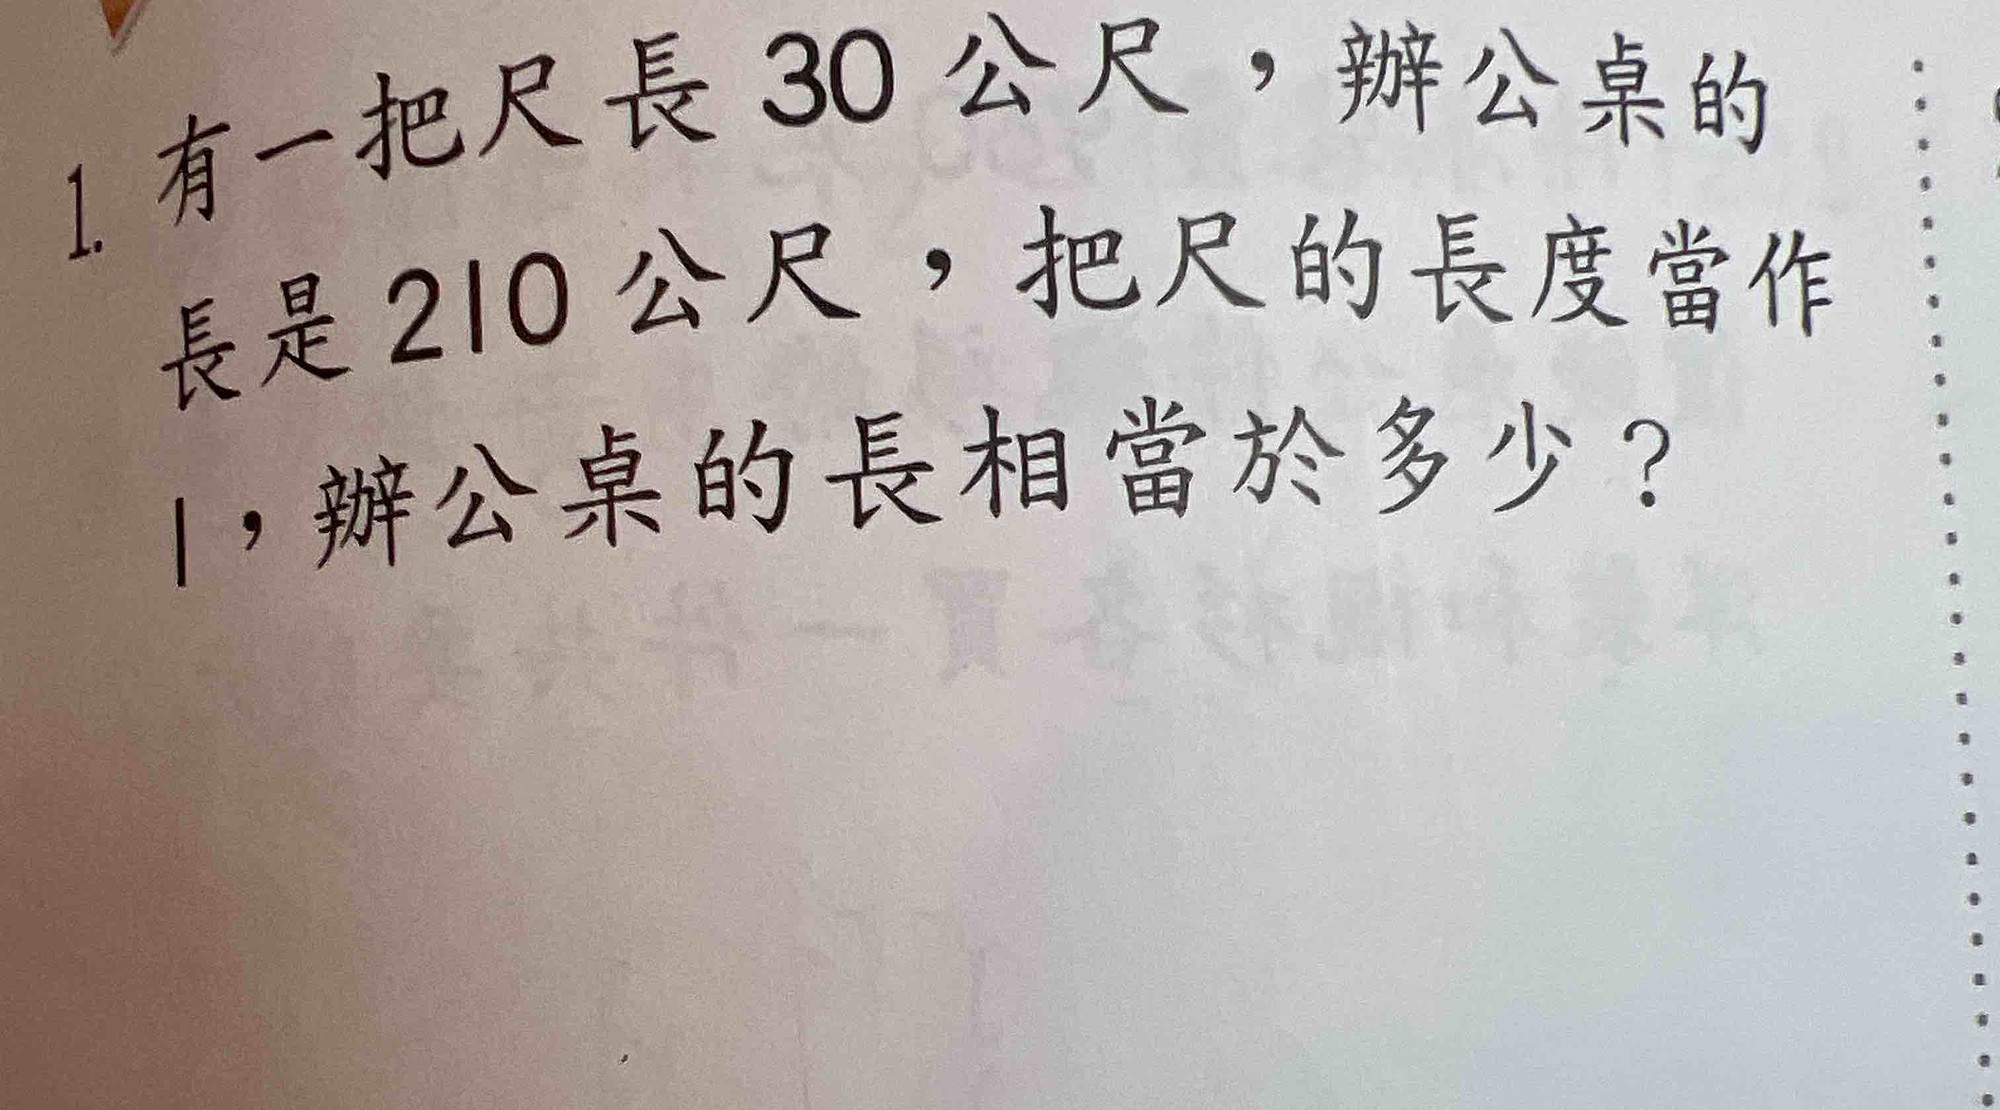 1. 有一把尺長 30 公尺，辦公桌的
長是 210 公尺，把尺的長度當作
1，辦公桌的長相當於多少？